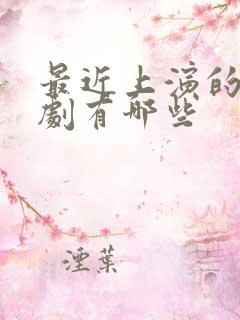 最近上演的
劇有哪些
湮葉